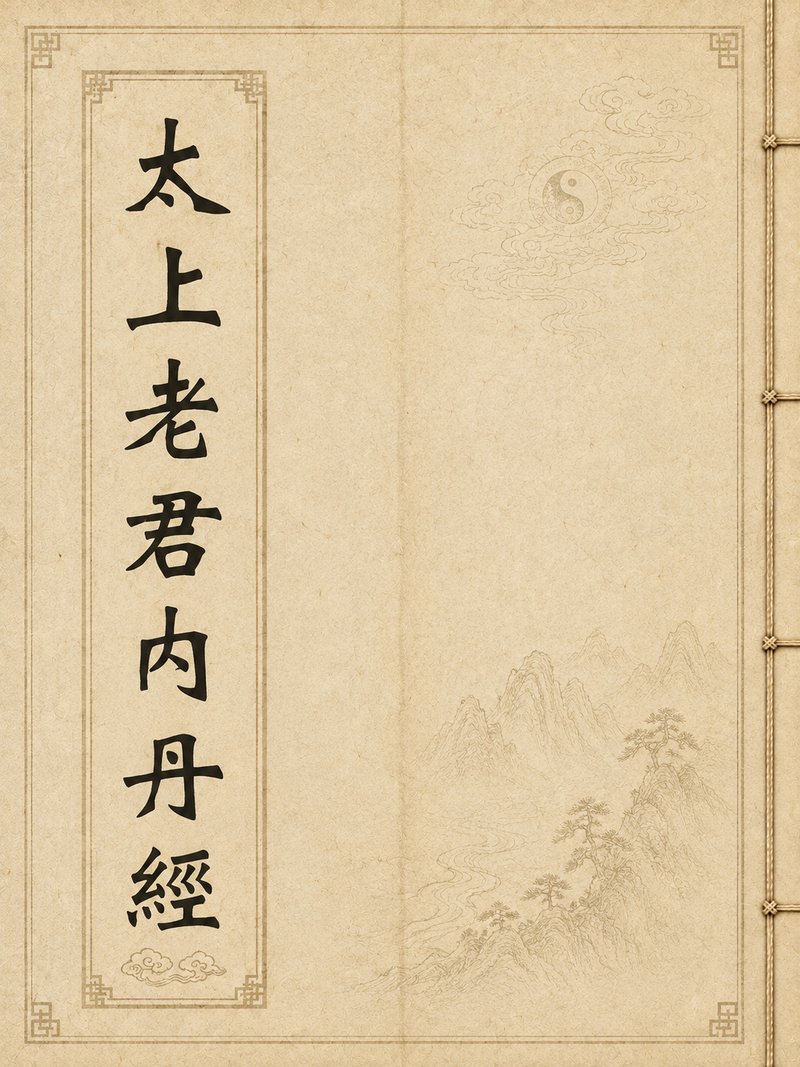 太上老君内丹經